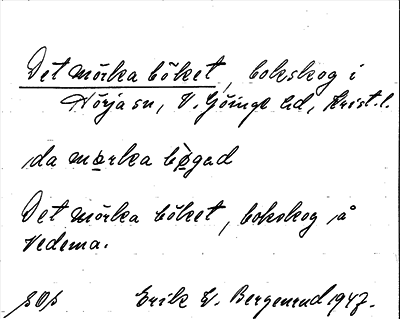 Det mörka böket, bokskog i
Hörja sn, V. Göinge hd, Krist. l.
da mørka bø̀gad
Det mörka böket, bokskog å
Vedema.
Erik W. Bergenrud 1947.